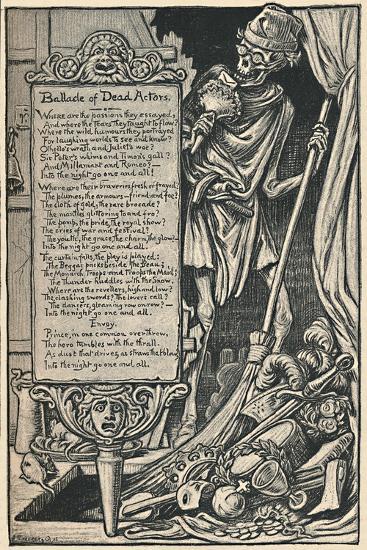 Ballade of Dead Actors.
Where are the passions they essayed,
And where the tears they taught to flow?
Where the wild humours they portrayed
For laughing worlds to see and know?
Othello's wrath and Juliet's woe?
Sir Peter's whims and Timon's gall?
And Millamant and Romeo?
Into the night go one and all.
Where are their braveries fresh or frayed?
The plumes, the armours—friend and foe?
The cloth of gold, the rare brocade?
The mantles glittering to and fro?
The pomb, the pride, the royal show?
The cries of war and festival?
The youth, the grace, the charm, the glow?
Into the night go one and all.
The curtain falls, the play is played:
The Beggar packs beside the Beau;
The Monarch Troops, and Troops the Maid;
The Thunder huddles with the Snow.
Where are the revellers, high and low?
The clashing swords? The lover's call?
The dancers, gleaming row on row?
Into the night go one and all.
Envoy.
Prince, in one common overthrow,
The hero tumbles with the thrall.
As dust that drives, as straws that blow,
Into the night go one and all.